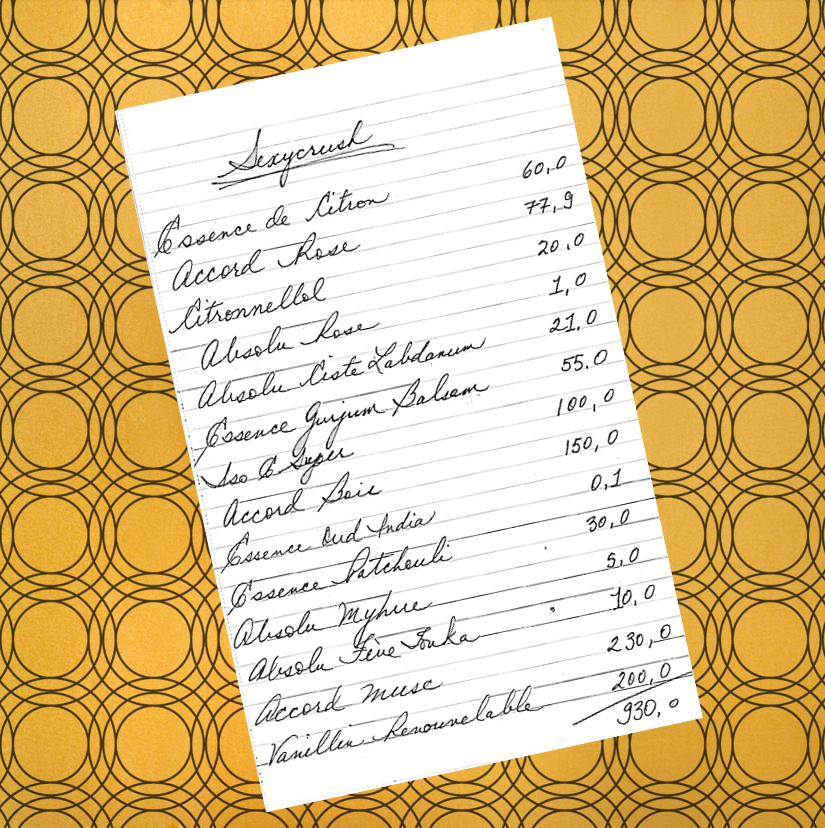 Sexycrush
Essence de Citron 60,0
Accord Rose 77,9
Citronnellol 20.0
Absolu Rose 1,0
Absolu Ciste Labdanum 21.0
Essence Gurjum Balsam 55.0
Iso E Super 100,0
Accord Bois 150,0
Essence Oud India 0,1
Essence Patchouli 30,0
Absolu Myhrre 5,0
Absolu Fève Tonka 10,0
Accord Musc 230,0
Vanillin Renouvelable 200,0
930,0